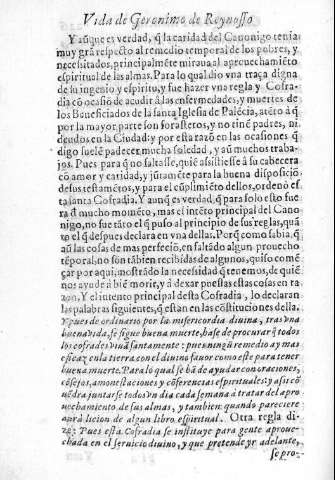 Vida de Geronimo de Reynosso
Y aũque es verdad, q̃ la caridad del Canonigo tenia
muy grã respecto al remedio temporal de los pobres, y
necessitados, principalmẽte miraua al aprouechamiẽto
espiritual de las almas. Para lo qual dio vna traça digna
de su ingenio y espiritu, y fue hazer vna regla y Cofra-
dia cõ ocasiõ de acudir à las enfermedades, y muertes de
los Beneficiados de la santa Iglesia de Palẽcia, atẽto à q̃
por la mayor parte son forasteros, y no tienẽ padres, ni
deudos en la Ciudad: y por esta razõ en las ocasiones q̃
digo suelẽ padecer mucha soledad, y aũ muchos traba-
jos. Pues para q̃ no faltasse, quiẽ assistiesse à su cabecera
cõ amor y caridad, y jũtamẽte para la buena disposiciõ
de sus testamẽtos, y para el cũplimiẽto dellos, ordenò es-
ta santa Cofradia. Y aunq̃ es verdad, q̃ para solo esto fue
ra d̃ mucho momẽto, mas el intẽto principal del Cano-
nigo, no fue tãto el q̃ puso al principio de sus reglas, quã
to el q̃ despues declara en vna della. Porq̃ como sabia, q̃
aũ las cosas de mas perfeciõ, en faltãdo algun prouecho
tẽporal, no son tãbien recibidas de algunos, quiso comẽ
çar por aqui, mostrãdo la necessidad q̃ tenemos, de quiẽ
nos ayude à biẽ morir, y à dexar puestas estas cosas en ra
zon. Y el intento principal desta Cofradia, lo declaran
las palabras siguientes, q̃ estàn en las cõstituciones della.
Y pues de ordinario por la misericordia diuina, tras vna
buena vida, se sigue buena muerte, hase de procurar q̃ todos
los cofrades viuã santamente: pues ningũ remedio ay mas
eficaz en la tierra con el diuino fauor como este para tener
buena muerte. Para lo qual se hã de ayudar con oraciones,
cõsejos, amonestaciones y cõferencias espirituales: y assi cõ
uẽdra juntarse todos vn dia cada semana à tratar del apro
uechamiento de sus almas, y tambien quando pareciere
aurà licion de algun libro espiritual. Otra regla di-
ze: Pues esta Cofradia se instituye para gente aproue-
chada en el seruicio diuino, y que pretende yr adelante,
se pro-